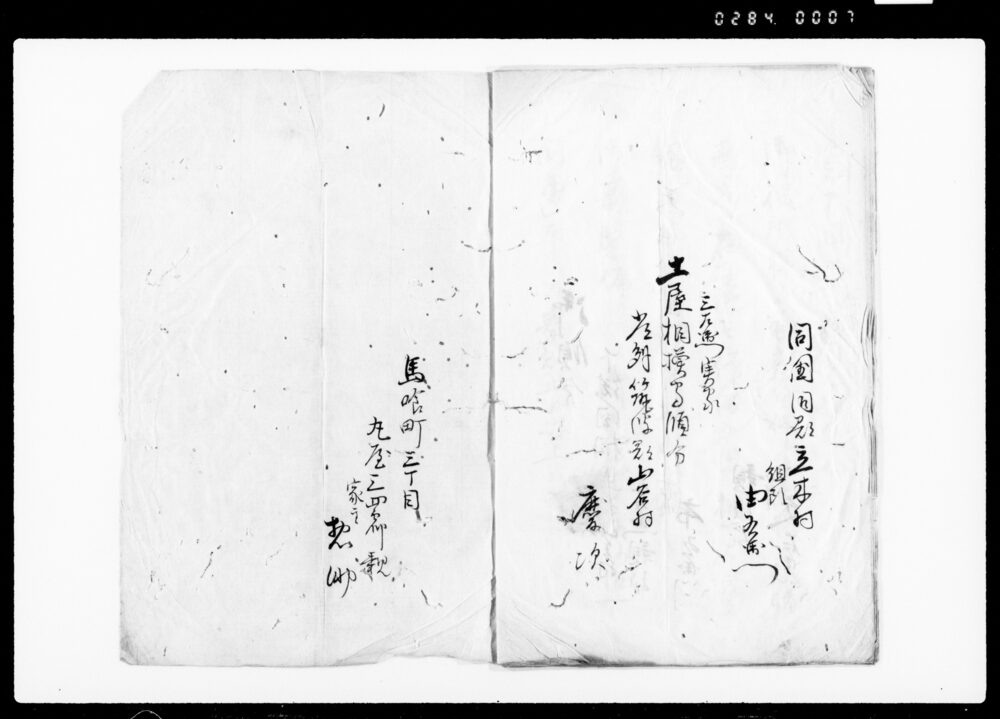 0284.0007
同国同郡立木村
組頭
由右衛門
三右衛門実家
土屋相模守領分
常州筑波郡山谷村
慶次
馬喰町三丁目
丸屋三四郎親
家主
惣助